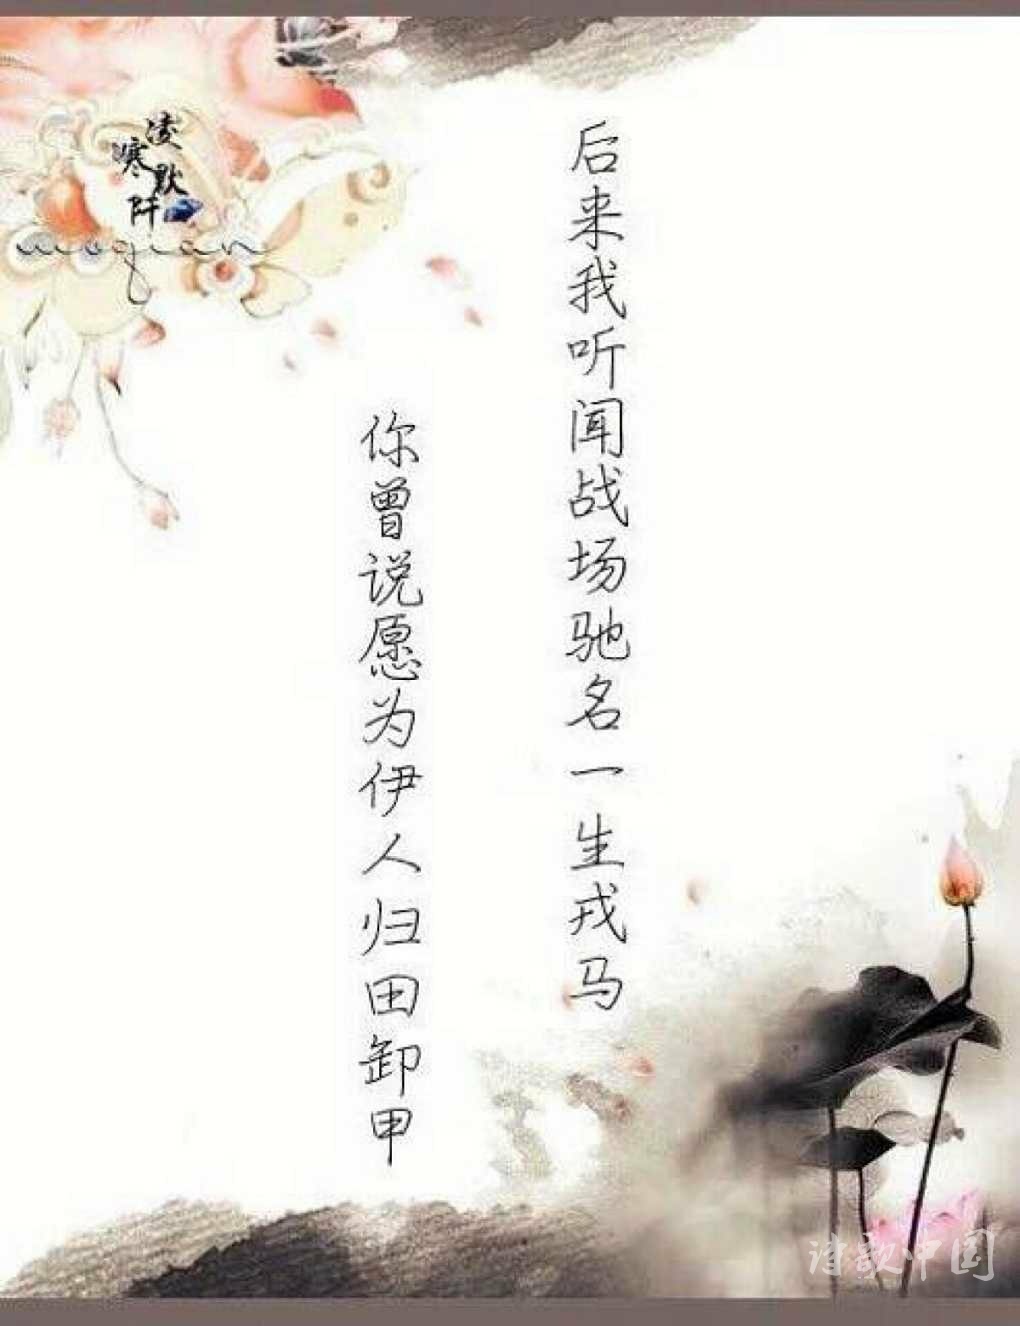 后来我听闻战场驰名一生戎马
你曾说愿为伊人归田卸甲
凌寒默阡
moqian
诗歌中国